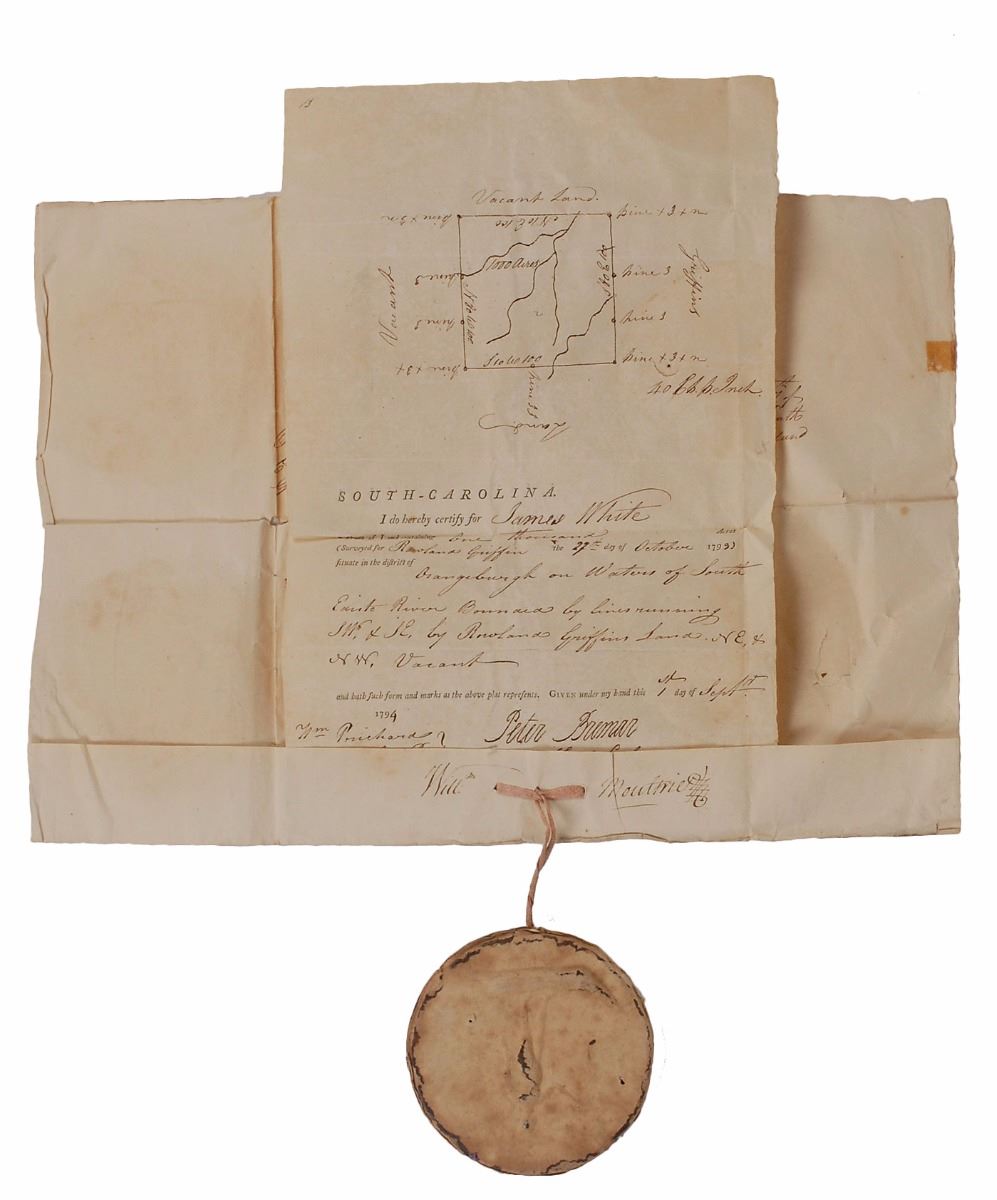 13
Vacant Land.
pine x 3 x n
pine x 3 x n
1000 Acres
pine 3
pine 3
Griffins
Vacant
pine 3
pine 3
pine x 3 x
So 40 W 100
pine x 3 x n
pine 33
40 Ch. p. Inch.
Land
SOUTH-CAROLINA.
I do hereby certify for James White
one thousand Acres
(Surveyed for Rowland Griffin the 27th day of October 1793)
situate in the district of
Orangeburgh on Waters of South
Edisto River Bounded by lines running
SW. & SE. by Rowland Griffins Land. NE, &
NW, Vacant
and hath such form and marks as the above plat represents. GIVEN under my hand this 1st day of Sept.
1794
Wm Prichard
Peter Bremar
Willm Moultrie